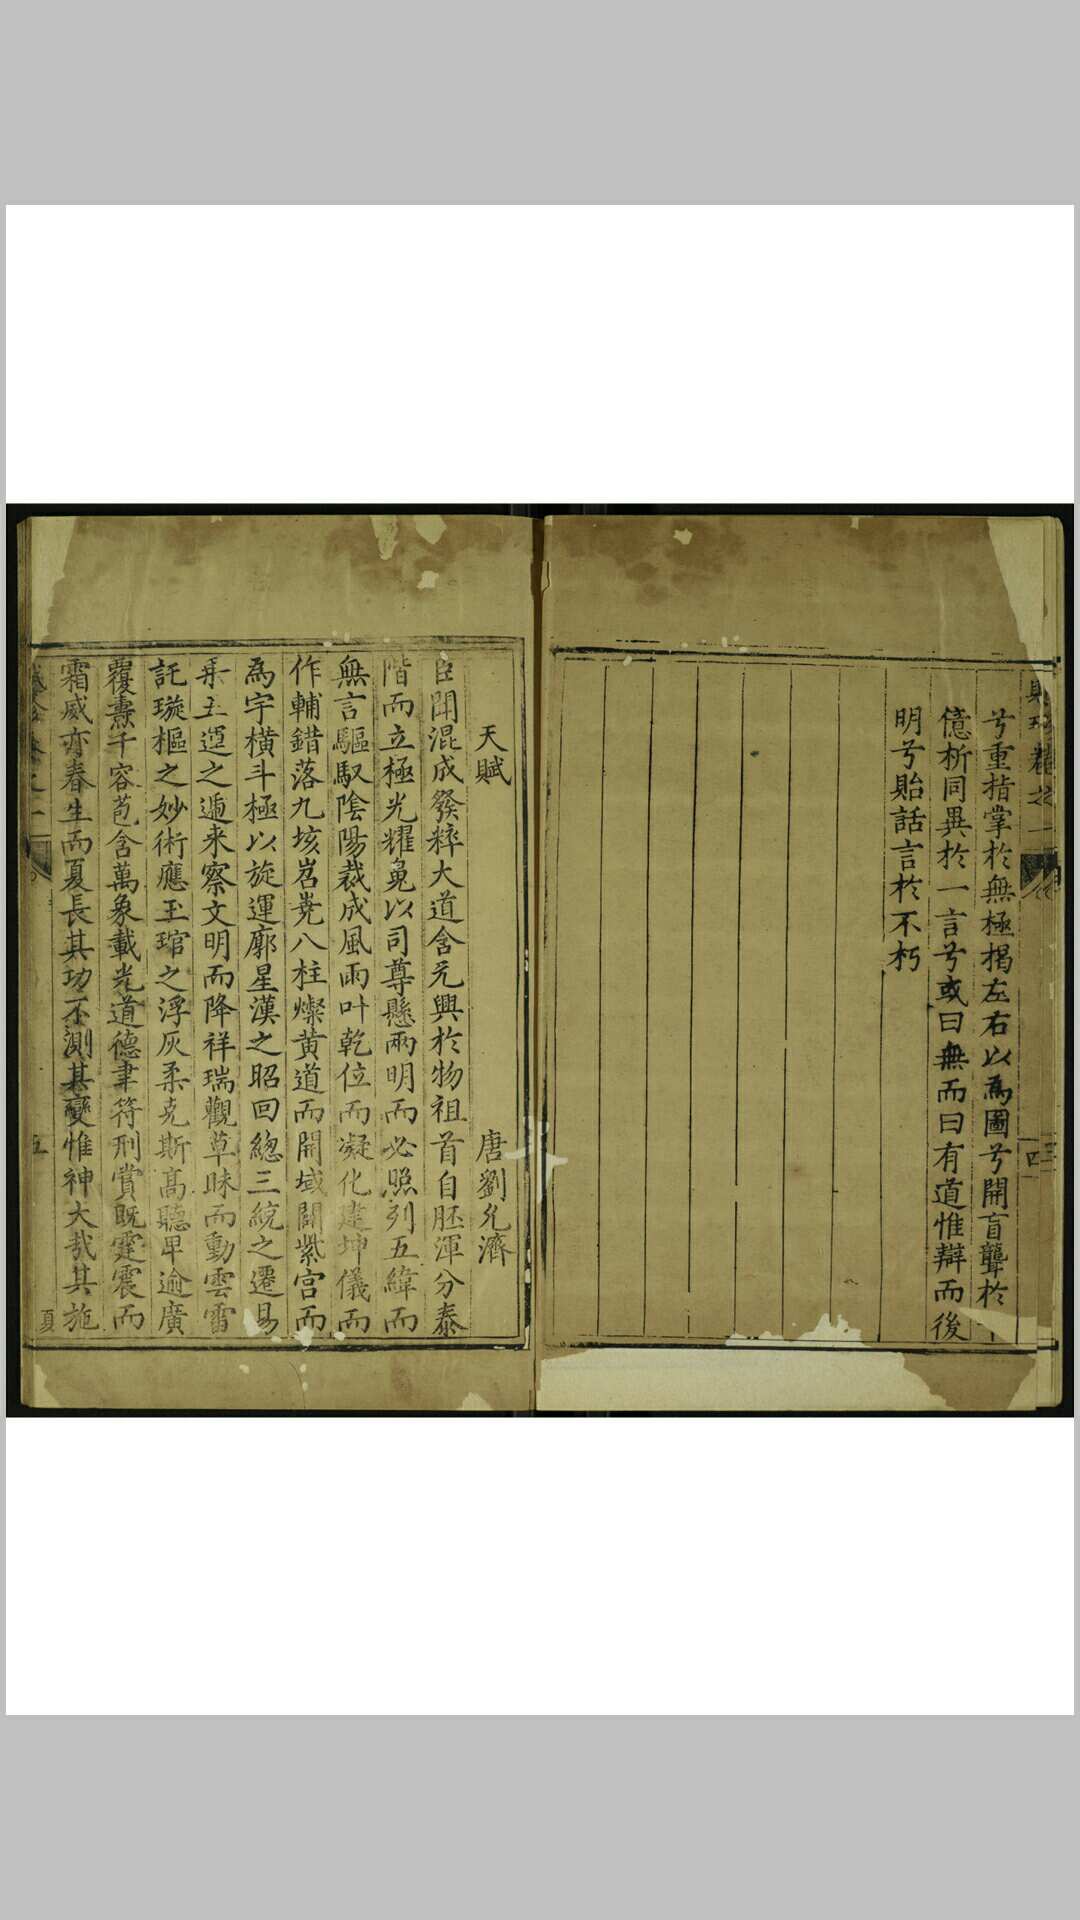 兮重指掌於無極揭左右以為圖兮開盲聾於
億析同異於一言兮或曰無而曰有道惟辯而後
明兮貽話言於不朽
四
天賦
唐劉允濟
臣聞混成發粹大道含元興於物祖首自胚渾分泰
階而立極光耀魄以司尊懸兩明而必照列五緯而
無言驅馭陰陽裁成風雨叶乾位而凝化建坤儀而
作輔錯落九垓岧嶤八柱燦黃道而開域闢紫宮而
為宇橫斗極以旋運廓星漢之昭回總三統之遷易
乘五運之遞來察文明而降祥瑞觀草昧而動雲雷
託璇樞之妙術應玉琯之浮灰柔克斯高聽卑逾廣
覆燾千容苞含萬象載光道德聿符刑賞既霆震而
霜威亦春生而夏長其功不測其變惟神大哉其施
五